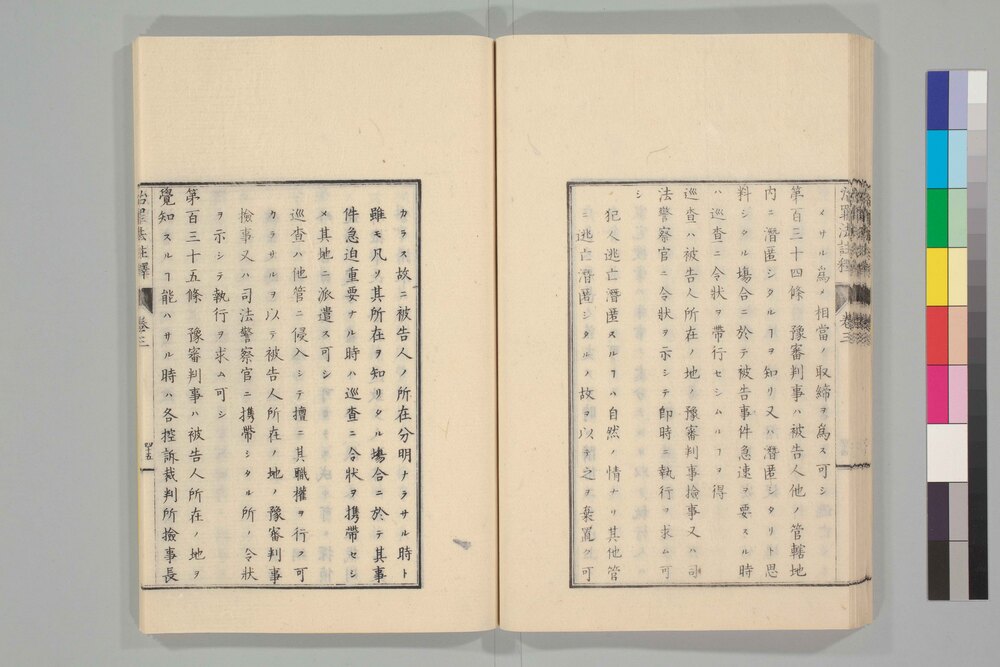 治罪法註釋 卷三
メサル為メ相當ノ取締ヲ為ス可シ
第百三十四條 豫審判事ハ被告人他ノ管轄地
内ニ潛匿シタルヿヲ知リ又ハ潛匿シタリト思
料シタル塲合ニ於テ被告事件急速ヲ要スル時
ハ巡査ニ令狀ヲ帶行セシムルヿヲ得
巡査ハ被告人所在ノ地ノ豫審判事撿事又ハ司
法警察官ニ令狀ヲ示シテ即時ニ執行ヲ求ム可
シ
犯人逃亡潛匿スルヿハ自然ノ情ナリ其他管
ニ逃亡潛匿シタルノ故ヲ以テ之ヲ棄置ク可
カラス故ニ被告人ノ所在分明ナラサル時ト
雖モ凡ソ其所在ヲ知リタル塲合ニ於テ其事
件急迫重要ナル時ハ巡査ニ令狀ヲ携帶セシ
メ其地ニ派遣ス可シ
巡査ハ他管ニ侵入シテ擅ニ其職權ヲ行フ可
カラサルヲ以テ被告人所在ノ地ノ豫審判事
撿事又ハ司法警察官ニ携帶シタル所ノ令狀
ヲ示シテ執行ヲ求ム可シ
第百三十五條 豫審判事ハ被告人所在ノ地ヲ
覺知スルヿ能ハサル時ハ各控訴裁判所撿事長
治罪法註釋 卷三 四十五